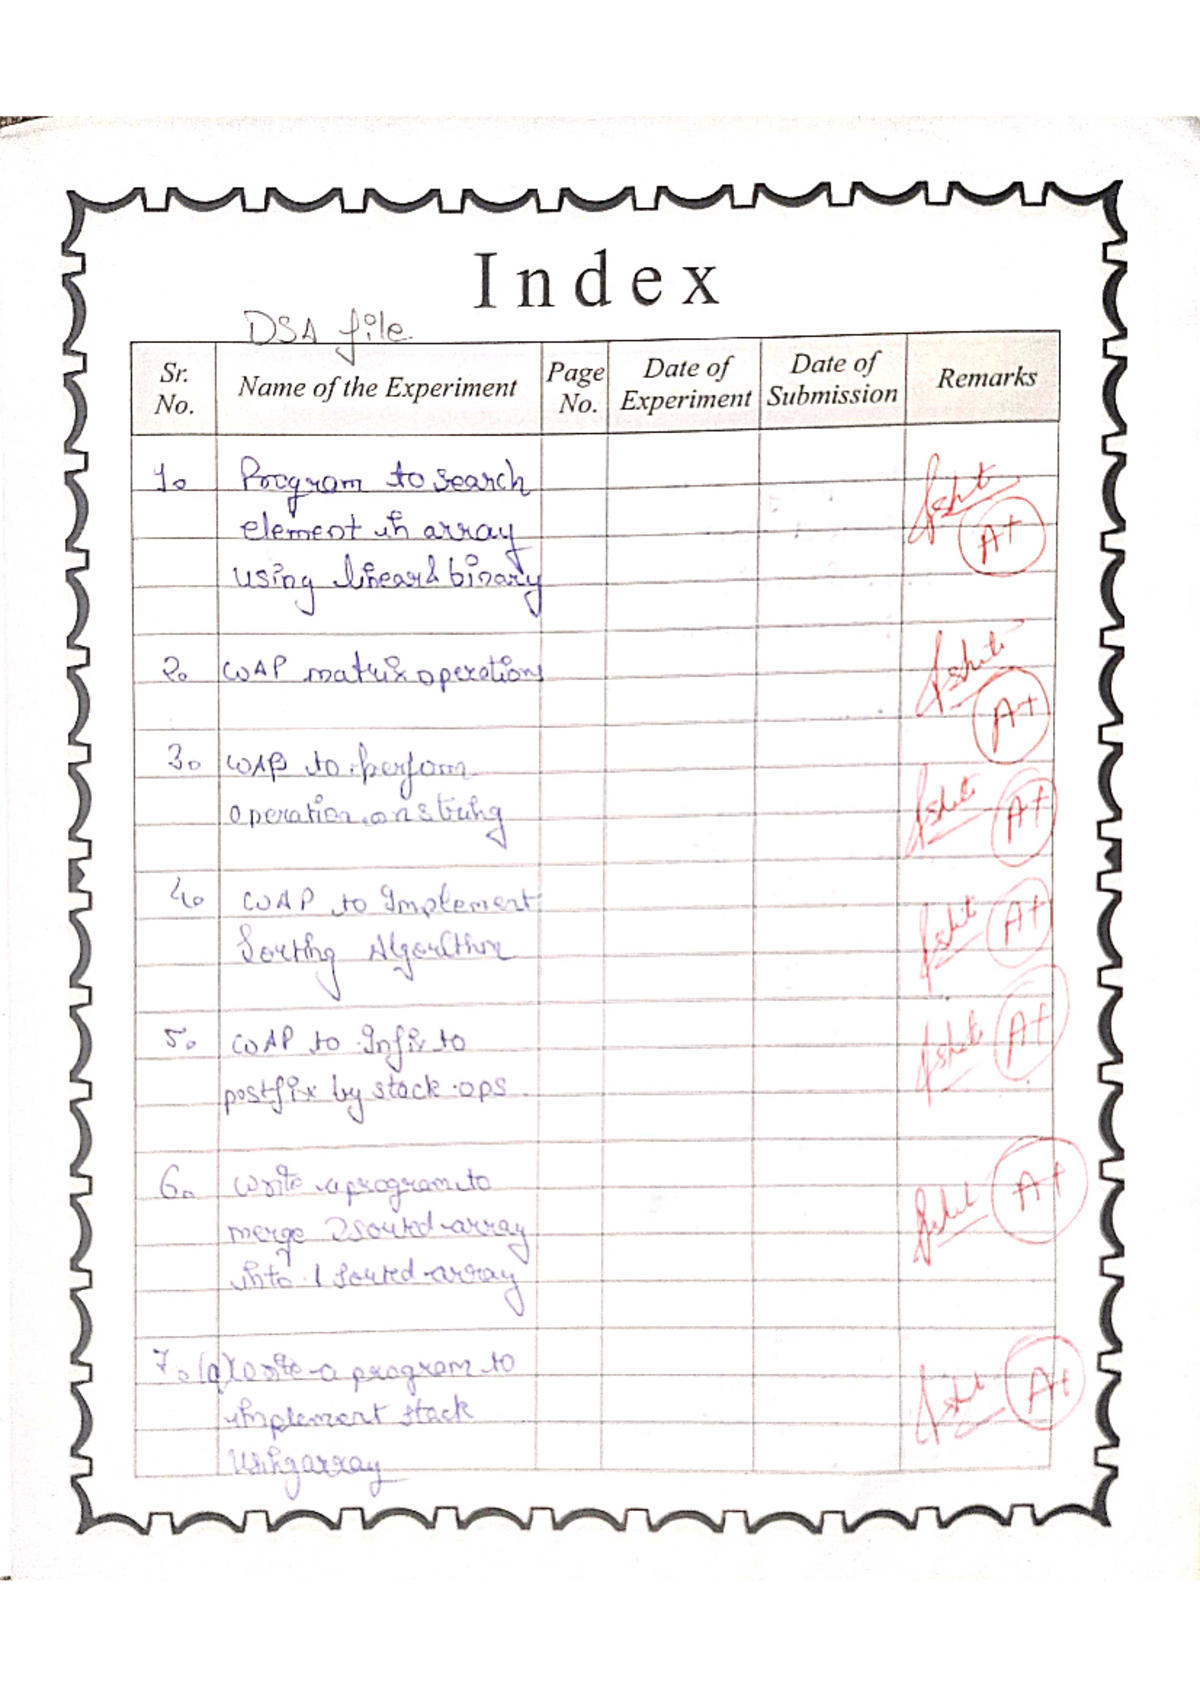 Index
DSA file
Sr. No. Name of the Experiment Page No. Date of Experiment Date of Submission Remarks
1. Program to search
element in array
using linear & binary
A+
2. WAP matrix operations
A+
3. WAP to perform
operation on string
A+
4. WAP to Implement
Sorting Algorithm
A+
5. WAP to Infix to
postfix by stack ops
A+
6. Write a program to
merge 2 sorted array
into 1 sorted array
A+
7. (a) Write a program to
implement stack
Using array
A+